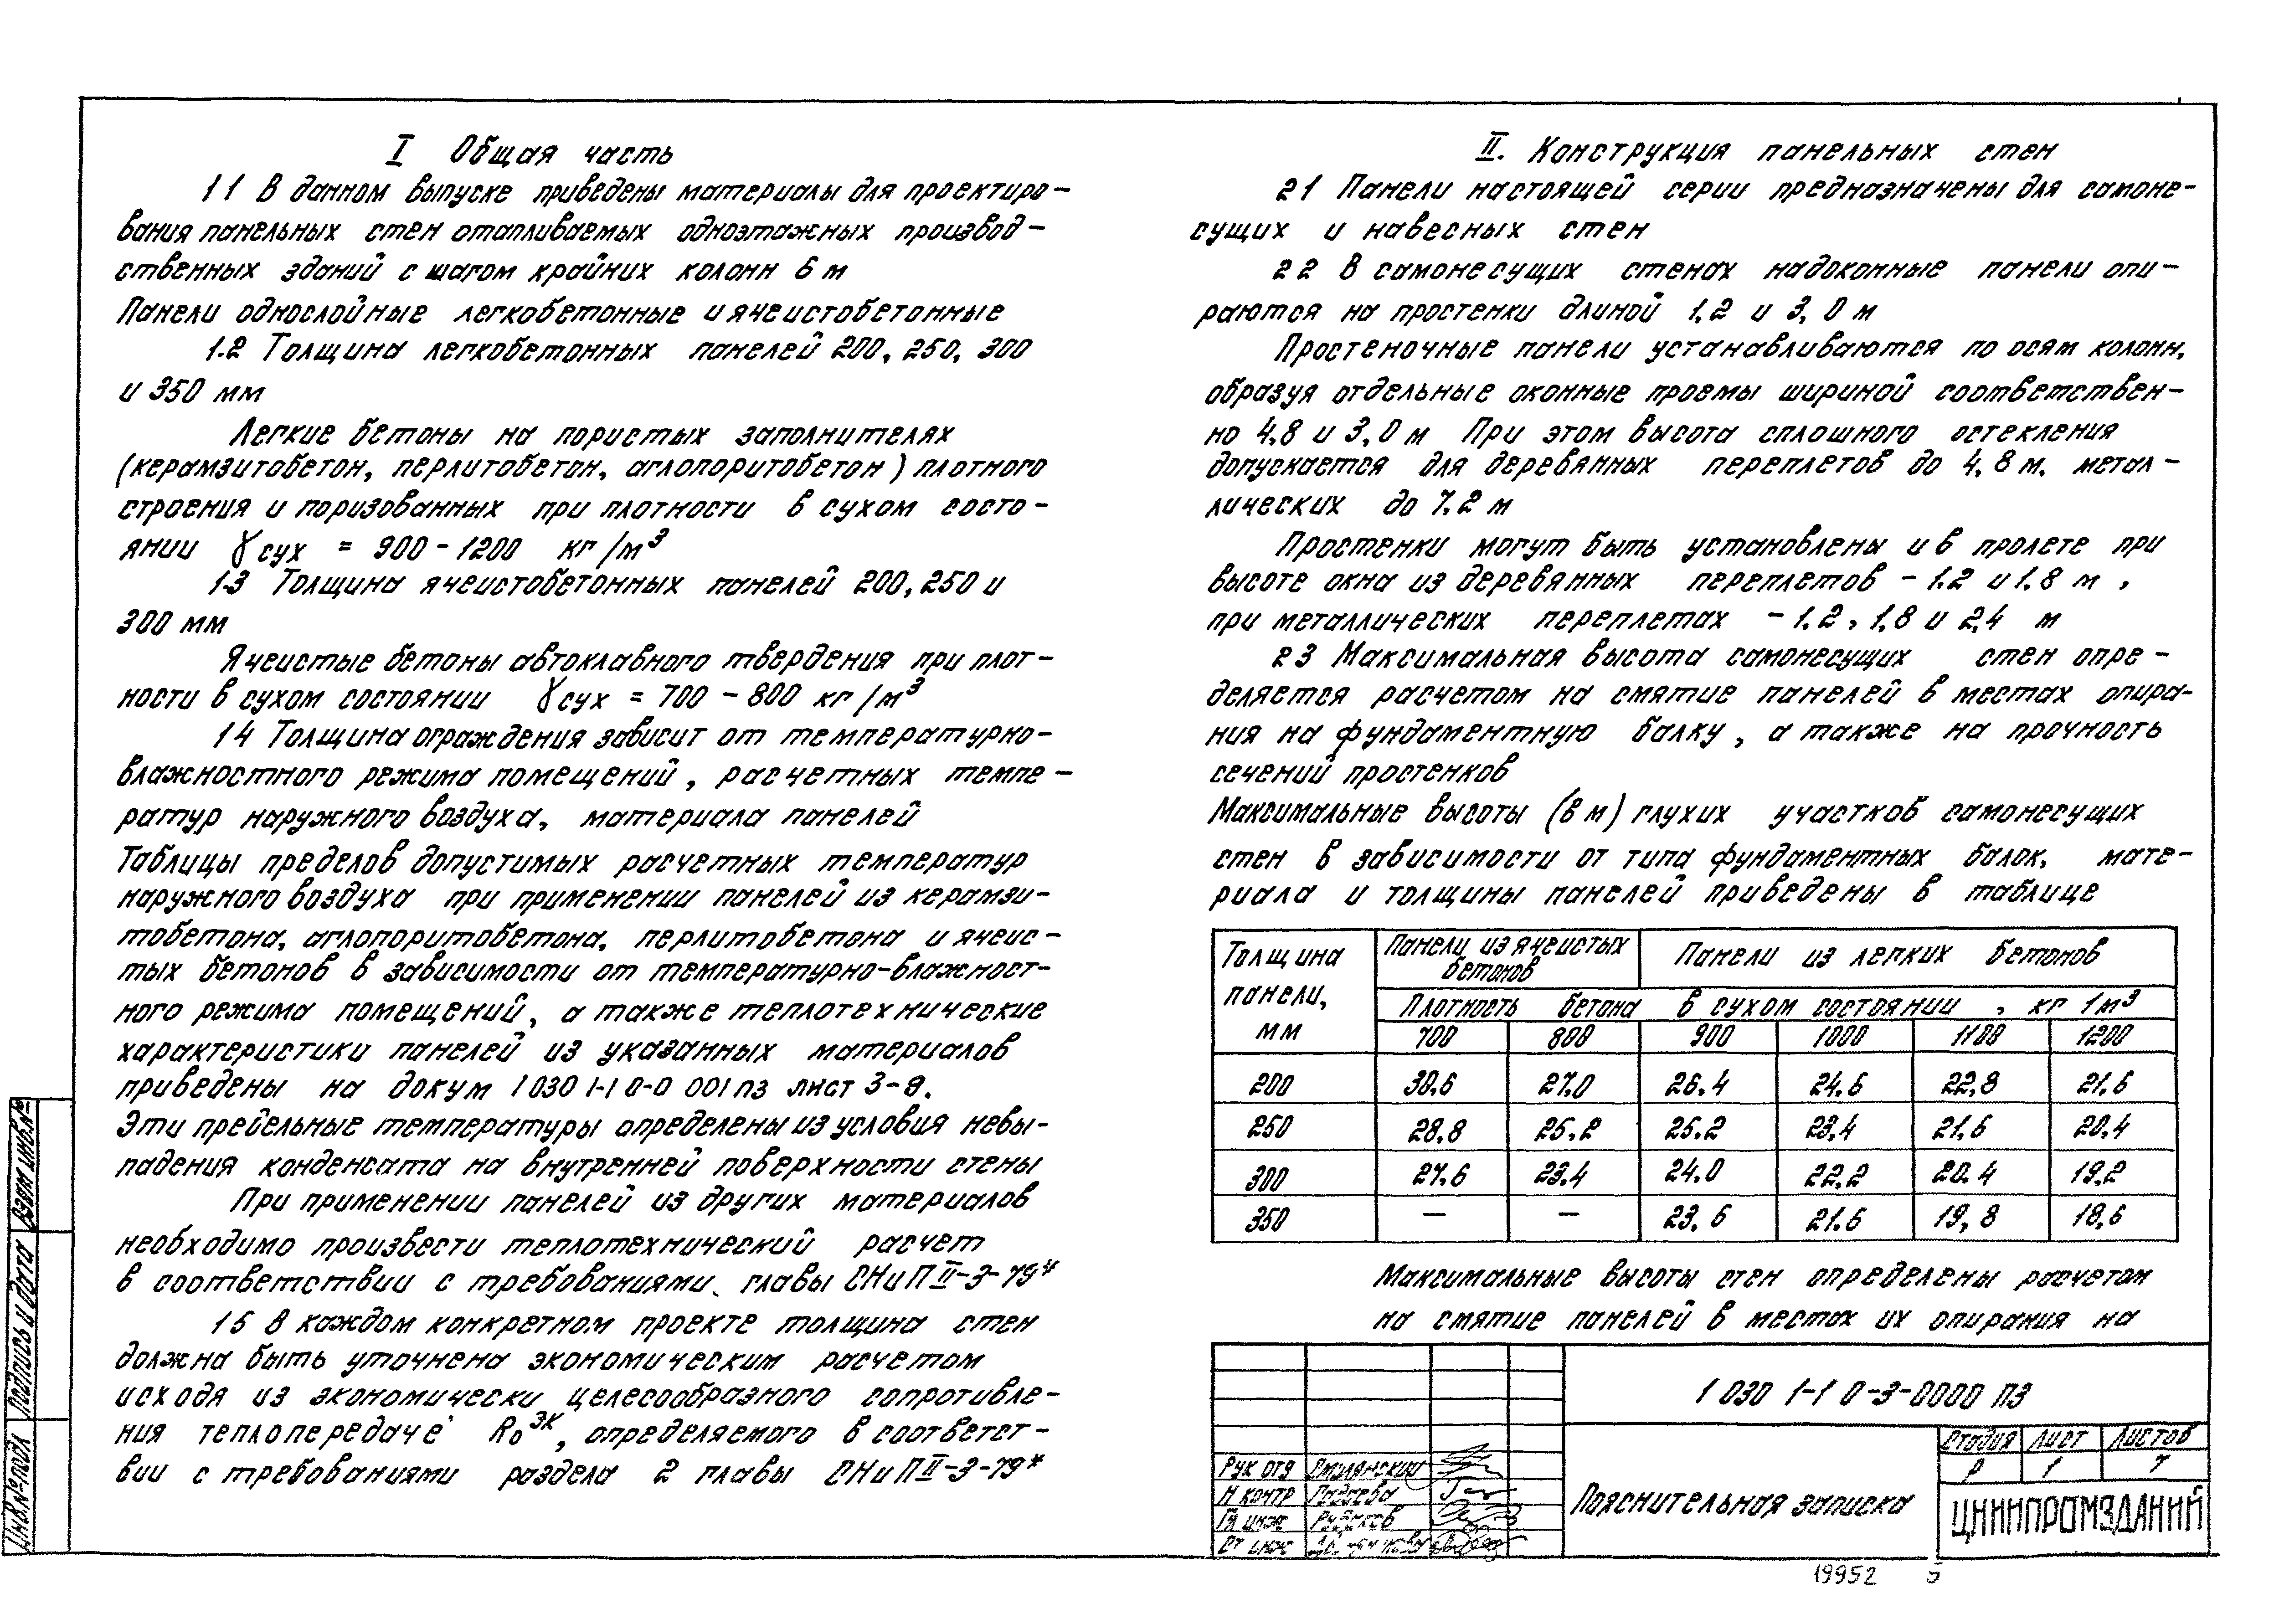 I Общая часть
1 1 В данном выпуске приведены материалы для проектиро-
вания панельных стен отапливаемых одноэтажных производ-
ственных зданий с шагом крайних колонн 6 м
Панели однослойные легкобетонные и ячеистобетонные
1.2 Толщина легкобетонных панелей 200, 250, 300
и 350 мм
Легкие бетоны на пористых заполнителях
(керамзитобетон, перлитобетон, аглопоритобетон) плотного
строения и поризованных при плотности в сухом состо-
янии γсух = 900-1200 кг/м³
1.3 Толщина ячеистобетонных панелей 200, 250 и
300 мм
Ячеистые бетоны автоклавного твердения при плот-
ности в сухом состоянии γсух = 700 - 800 кг/м³
1 4 Толщина ограждения зависит от температурно-
влажностного режима помещений, расчетных темпе-
ратур наружного воздуха, материала панелей
Таблицы пределов допустимых расчетных температур
наружного воздуха при применении панелей из керамзи-
тобетона, аглопоритобетона, перлитобетона и ячеис-
тых бетонов в зависимости от температурно-влажност-
ного режима помещений, а также теплотехнические
характеристики панелей из указанных материалов
приведены на докум 1 030 1-1 0-0 001 пз лист 3-8.
Эти предельные температуры определены из условия невы-
падения конденсата на внутренней поверхности стены
При применении панелей из других материалов
необходимо произвести теплотехнический расчет
в соответствии с требованиями главы СНиП II-3-79*
1 5 В каждом конкретном проекте толщина стен
должна быть уточнена экономическим расчетом
исходя из экономически целесообразного сопротивле-
ния теплопередаче R₀ᵉᵏ, определяемого в соответст-
вии с требованиями раздела 2 главы СНиП II-3-79*
II. Конструкция панельных стен
2 1 Панели настоящей серии предназначены для самоне-
сущих и навесных стен
2 2 В самонесущих стенах надоконные панели опи-
раются на простенки длиной 1,2 и 3,0 м
Простеночные панели устанавливаются по осям колонн,
образуя отдельные оконные проемы шириной соответствен-
но 4,8 и 3,0 м При этом высота сплошного остекления
допускается для деревянных переплетов до 4,8 м, метал-
лических до 7.2 м
Простенки могут быть установлены и в пролете при
высоте окна из деревянных переплетов - 1.2 и 1.8 м,
при металлических переплетах - 1.2, 1,8 и 2,4 м
2 3 Максимальная высота самонесущих стен опре-
деляется расчетом на смятие панелей в местах опира-
ния на фундаментную балку, а также на прочность
сечений простенков
Максимальные высоты (в м) глухих участков самонесущих
стен в зависимости от типа фундаментных балок, мате-
риала и толщины панелей приведены в таблице
Толщина панели, мм Панели из ячеистых бетонов Панели из легких бетонов
Плотность бетона в сухом состоянии, кг 1м³
700 800 900 1000 1100 1200
200 30.6 27.0 26.4 24.6 22,8 21.6
250 28,8 25.2 25.2 23,4 21.6 20,4
300 27.6 23.4 24.0 22.2 20.4 19,2
350 — — 23.6 21.6 19,8 18,6
Максимальные высоты стен определены расчетом
на смятие панелей в местах их опирания на
1 030 1-1 0-3-0000 ПЗ
Рук отд Смилянский
Н контр
Гл инж Рудаков
Ст инж
Пояснительная записка
Стадия Лист Листов
Р 1 7
ЦНИИПРОМЗДАНИЙ
Инв.№ подл Подпись и дата Взам инв.№
19952 5